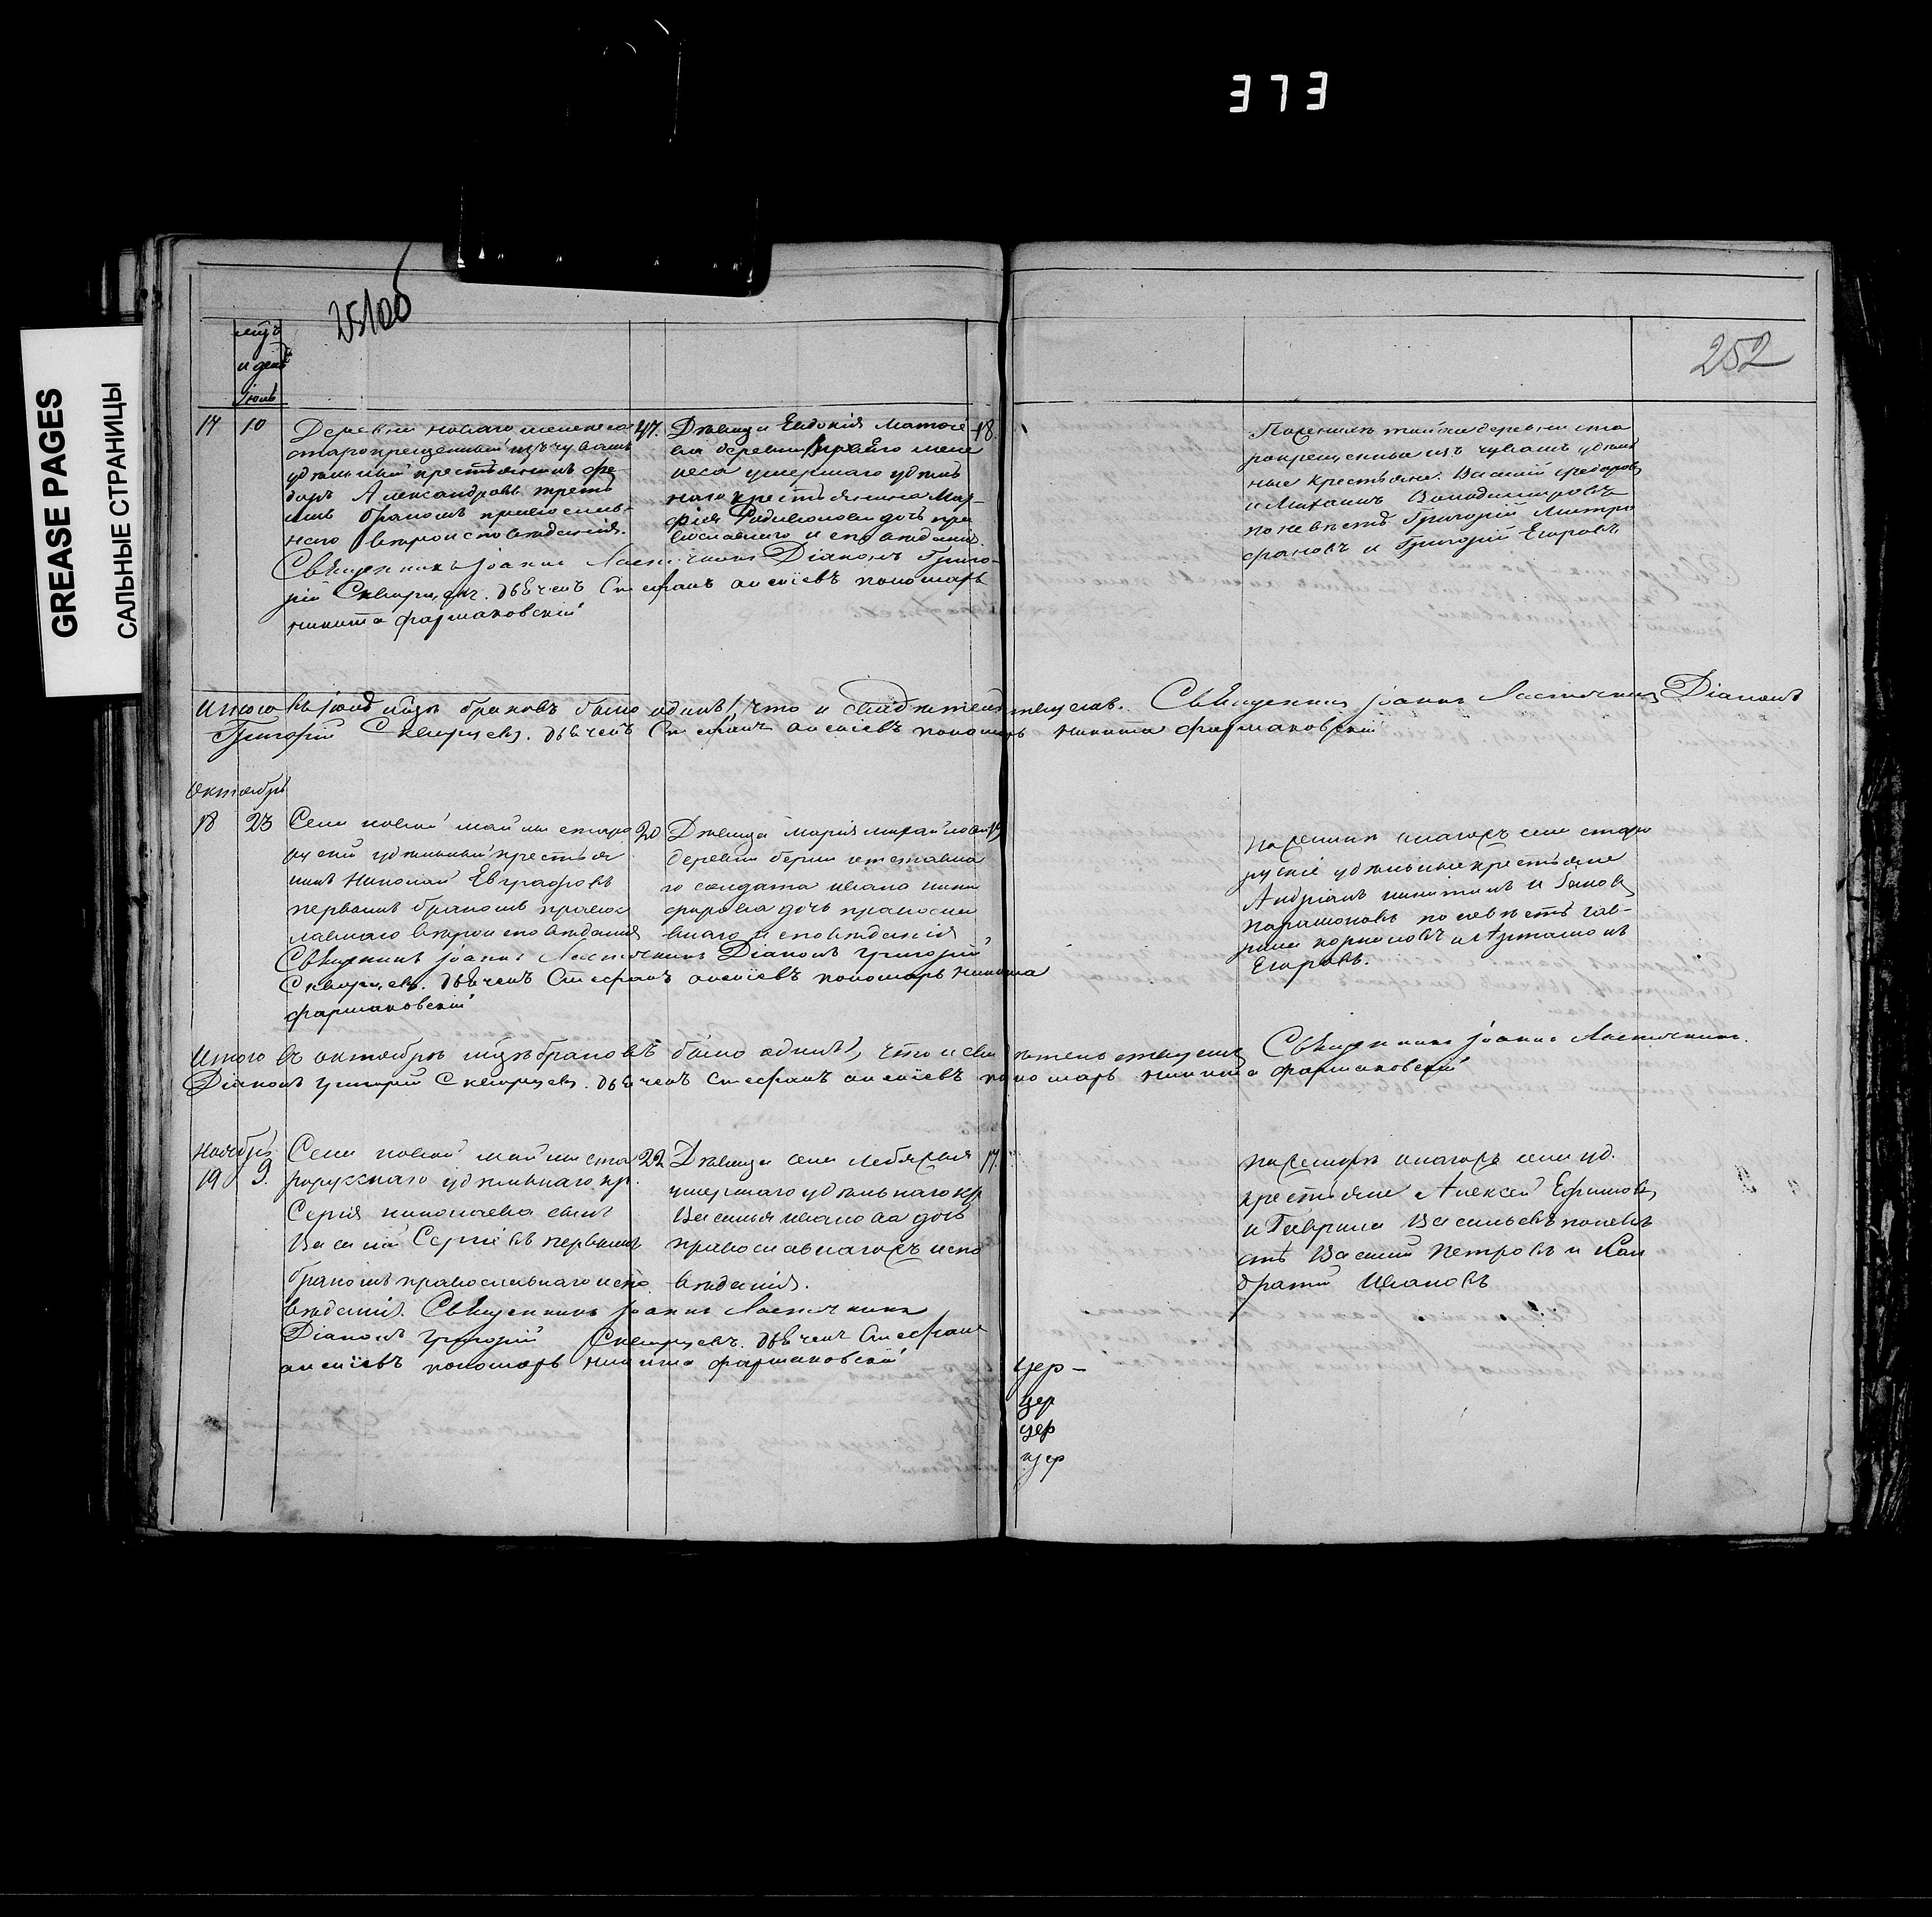 373
GREASE PAGES
САЛЬНЫЕ СТРАНИЦЫ
252
мцъ
и день
Июль
17 10
Деревни новаго
старокрещенный изъ чувашъ
удѣльный крестьянинъ Фе
доръ Александровъ треть
имъ бракомъ православ-
наго вѣроисповѣданія.
47.
Дѣвица Евдокія Матѳе
ва деревни
умершаго удѣль
наго крестьянина Мат-
фія Родионова дочь пра
вославнаго исповѣданія
18.
Поженихѣ тойже деревни ста
рокрещеные изъ чувашъ удѣль
ные крестьяне Василій Федоровъ
и Михаилъ Володимировъ
по невѣстѣ Григорій Митро
фановъ и Григорій Егоровъ
Священникъ Іоаннъ Ласточкинъ Діаконъ Григо-
рій Скворцевъ. дьячекъ Стефанъ Алексіевъ пономарь
Никита Фармаковскій
Итого въ Іюлѣ мцѣ браковъ было одинъ, что и свидѣтельствуемъ. Священникъ Іоаннъ Ласточкинъ Діаконъ
Григорій Скворцевъ. дьячекъ Стефанъ Алексіевъ пономарь Никита Фармаковскій
Октябрь
18 23
Села новой майны старо
руской удѣльный крестья
нинъ Николай Евграфовъ
первымъ бракомъ правос
лавнаго вѣроисповѣданія
20
Дѣвица Марія Михайлова
деревни отставна
го солдата Ивана Ники
форова дочь правосла
внаго исповѣданія
19
по женихѣ тогожъ села старо
рускіе удѣльные крестьяне
Андріанъ Никитинъ и Яковъ
Парамоновъ по невѣстѣ Гав-
рила Корниловъ и Артамонъ
Егоровъ.
Священникъ Іоаннъ Ласточкинъ Діаконъ Григорій
Скворцевъ. дьячекъ Стефанъ Алексіевъ пономарь Никита
Фармаковскій
Итого въ октябрѣ мцѣ браковъ было одинъ, что и свидѣтельствуемъ Священникъ Іоаннъ Ласточкинъ.
Діаконъ Григорій Скворцевъ. дьячекъ Стефанъ Алексіевъ пономарь Никита Фармаковскій
Ноябрь
19 9.
Села новой майны ста
рорусскаго удѣльнаго кр.
Сергія Николаева сынъ
Василій Сергіевъ первымъ
бракомъ православнаго испо
вѣданія.
22
Дѣвица села Лебяжья
умершаго удѣльнаго кр
Василья Иванова дочь
православнагожъ испо
вѣданія.
17.
по женихѣ тогожъ села уд.
крестьяне Алексей Ефимовъ
и Гаврила Васильевъ по невѣ
стѣ Василій Петровъ и Кон
дратій Ивановъ
Священникъ Іоаннъ Ласточкинъ
Діаконъ Григорій Скворцевъ. дьячекъ Стефанъ
Алексіевъ пономарь Никита Фармаковскій
цер-
цер
цер
цер